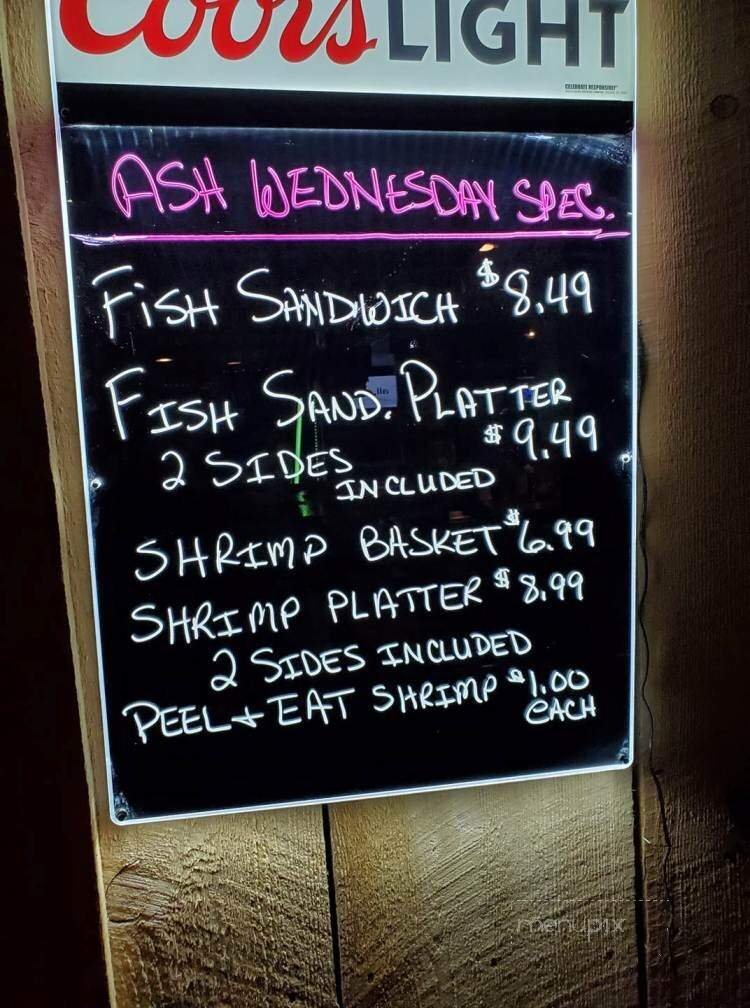 Coors LIGHT
CELEBRATE RESPONSIBLY
ASH WEDNESDAY SPEC.
FISH SANDWICH $8.49
FISH SAND. PLATTER
$9.49
2 SIDES
INCLUDED
SHRIMP BASKET $6.99
SHRIMP PLATTER $8.99
2 SIDES INCLUDED
PEEL + EAT SHRIMP $1.00
EACH
menupix